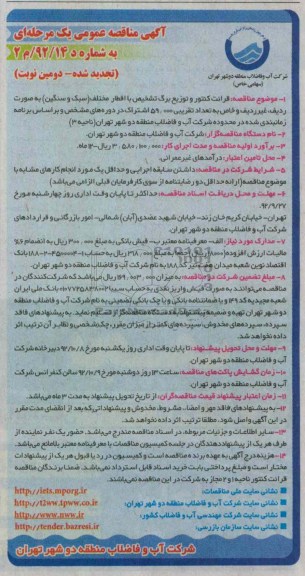 آگهی مناقصه عمومی یک مرحله‌ای
به شماره د ۹۲/۱۴/م ۲
(تجدید شده - دومین نوبت)
شرکت آب و فاضلاب منطقه دو شهر تهران
(سهامی خاص)
۱- موضوع مناقصه: قرائت کنتور و توزیع برگ تشخیص با اقطار مختلف (سبک و سنگین) به صورت
ردیف، غیرردیف و خاص به تعداد تقریبی ۵۹۰,۰۰۰ اشتراک در دوره‌های مشخص و بر اساس برنامه
زمانبندی شده در محدوده شرکت آب و فاضلاب منطقه دو شهر تهران (ناحیه ۳)
۲- نام دستگاه مناقصه‌گزار: شرکت آب و فاضلاب منطقه دو شهر تهران.
۳- برآورد اولیه مناقصه و مدت اجرای کار: ریال - ۱۲ ماه.
۴- محل تامین اعتبار: درآمدهای غیرعمرانی.
۵- شرایط شرکت در مناقصه: داشتن سابقه اجرایی و حداقل یک مورد انجام کارهای مشابه با
موضوع مناقصه (ارائه حداقل دو رضایتنامه از سوی کارفرمایان قبلی الزامی می‌باشد)
۶- مهلت و محل دریافت اسناد مناقصه: حداکثر تا پایان وقت اداری روز چهارشنبه مورخ
۹۲/۹/۲۷
تهران - خیابان کریم خان زند - خیابان شهید عضدی (آبان) شمالی - امور بازرگانی و قراردادهای
شرکت آب و فاضلاب منطقه دو شهر تهران.
۷- مدارک مورد نیاز: الف- معرفینامه معتبر ب- فیش بانکی به مبلغ ۳۰۰,۰۰۰ ریال به انضمام ۶٪
مالیات ارزش افزوده
شرکت آب و فاضلاب منطقه دو شهر تهران.
۸- مبلغ تضمین شرکت در مناقصه: به میزان ریال می‌باشد که شرکت‌کنندگان در
مناقصه می‌توانند به صورت فیش واریز نقدی به حساب بانک ملی ایران
شعبه مجیدیه کد و یا ضمانتنامه بانکی و یا چک بانکی تضمینی به نام شرکت آب و فاضلاب منطقه
دو شهر تهران تهیه و ضمیمه پیشنهاد به مناقصه‌گزار تسلیم نماید. به پیشنهادهای فاقد
سپرده، سپرده‌های مخدوش، سپرده‌های کمتر از میزان مقرر، چک شخصی و نظایر آن ترتیب اثر
داده نخواهد شد.
۹- مهلت و محل تحویل پیشنهاد: تا پایان وقت اداری روز یکشنبه مورخ ۹۲/۱۰/۸ دبیرخانه شرکت
آب و فاضلاب منطقه دو شهر تهران.
۱۰- زمان گشایش پاکت‌های مناقصه: ساعت ۱۳ روز دوشنبه مورخ ۹۲/۱۰/۹ سالن کنفرانس شرکت
آب و فاضلاب منطقه دو شهر تهران.
۱۱- زمان اعتبار پیشنهاد قیمت مناقصه‌گران: از تاریخ تحویل پیشنهاد به مدت ۳ ماه می‌باشد.
۱۲- به پیشنهادهای فاقد مهر و امضا، مشروط، مخدوش و پیشنهاداتی که بعد از انقضای مدت مقرر
در این آگهی واصل شود، مطلقا ترتیب اثر داده نخواهد شد.
۱۳- سایر اطلاعات و جزئیات مربوطه، در اسناد مناقصه مندرج می‌باشد. حضور یک نفر نماینده از
طرف هر یک از پیشنهاددهندگان در جلسه کمیسیون مناقصات با معرفینامه معتبر بلامانع می‌باشد.
۱۴- هزینه درج آگهی به عهده برنده مناقصه است و کمیسیون در رد یا قبول هر یک از پیشنهادات
مختار است و مبلغ پرداختی بابت خرید اسناد قابل استرداد نمی‌باشد. ضمنا برندگان مناقصه
قرائت کنتور ناحیه ۱ و ۲ مجاز به شرکت در این مناقصه نمی‌باشند.
نشانی سایت ملی مناقصات: http://iets.mporg.ir
نشانی سایت شرکت آب و فاضلاب منطقه دو شهر تهران: http://t2ww.tpww.co.ir
نشانی سایت شرکت مهندسی آب و فاضلاب کشور: http://www.nww.ir
نشانی سایت سازمان بازرسی: http://tender.bazresi.ir
شرکت آب و فاضلاب منطقه دو شهر تهران